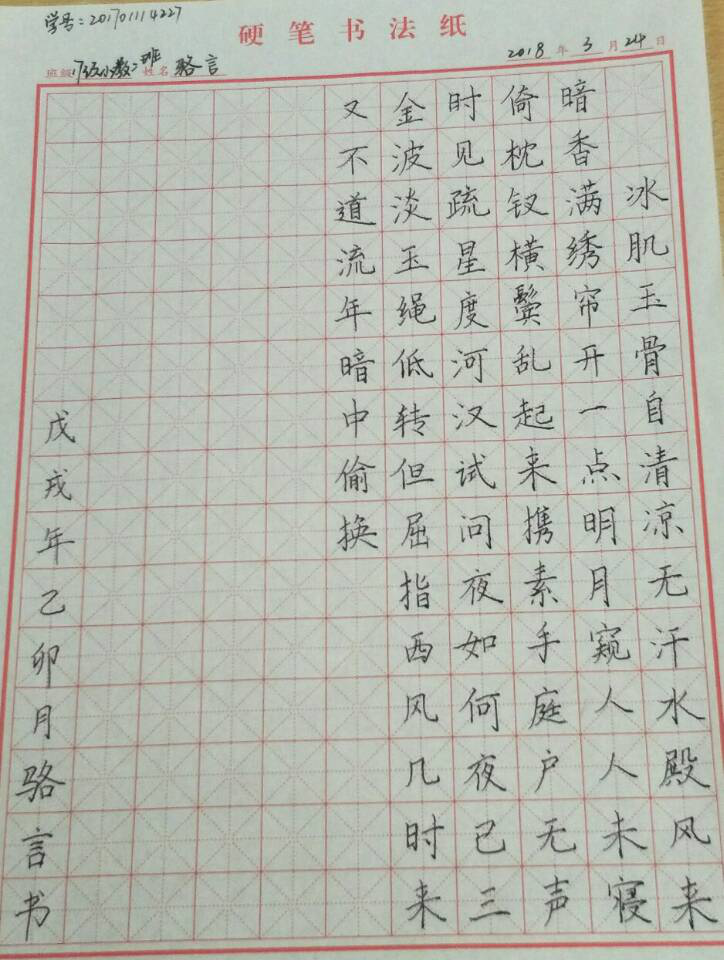 学号:201701114227
硬笔书法纸
班级17级小教二班 姓名 骆言 2018年3月24日
冰肌玉骨自清凉无汗水殿风来
暗香满绣帘开一点明月窥人人未寝
倚枕钗横鬓乱起来携素手庭户无声
时见疏星度河汉试问夜如何夜已三
金波淡玉绳低转但屈指西风几时来
又不道流年暗中偷换
戊戌年乙卯月骆言书